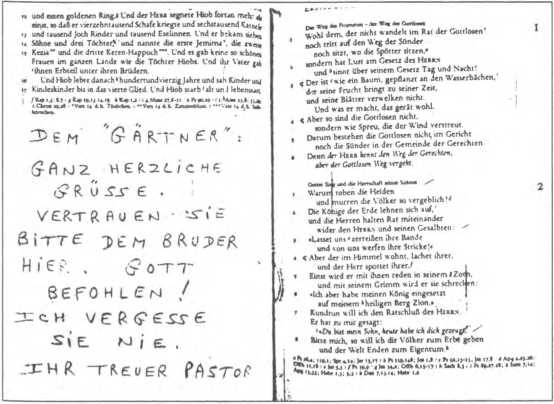 und einen goldenen Ring. Und der HERR segnete Hiob fortan mehr als
einst, so daß er vierzehntausend Schafe kriegte und sechstausend Kamele
und tausend Joch Rinder und tausend Eselinnen. Und er bekam sieben
Söhne und drei Töchter und nannte die erste Jemima, die zweite
Kezia und die dritte Keren-Happuch. Und es gab keine so schönen
Frauen im ganzen Lande wie die Töchter Hiobs. Und ihr Vater gab
ihnen Erbteil unter ihren Brüdern.
Und Hiob lebte danach hundertundvierzig Jahre und sah Kinder und
Kindeskinder bis in das vierte Glied. Und Hiob starb alt und lebenssatt.
DEM "GÄRTNER":
GANZ HERZLICHE
GRÜSSE.
VERTRAUEN SIE
BITTE DEM BRUDER
HIER. GOTT
BEFOHLEN!
ICH VERGESSE
SIE NIE.
IHR TREUER PASTOR
Der Weg des Frommen – der Weg des Gottlosen
1
Wohl dem, der nicht wandelt im Rat der Gottlosen
noch tritt auf den Weg der Sünder
noch sitzt, wo die Spötter sitzen,
sondern hat Lust am Gesetz des HERRN
und sinnt über seinem Gesetz Tag und Nacht!
Der ist wie ein Baum, gepflanzt an den Wasserbächen,
der seine Frucht bringt zu seiner Zeit,
und seine Blätter verwelken nicht.
Und was er macht, das gerät wohl.
Aber so sind die Gottlosen nicht,
sondern wie Spreu, die der Wind verstreut.
Darum bestehen die Gottlosen nicht im Gericht
noch die Sünder in der Gemeinde der Gerechten.
Denn der HERR kennt den Weg der Gerechten,
aber der Gottlosen Weg vergeht.
Gottes Sieg und die Herrschaft seines Sohnes
2
Warum toben die Heiden
und murren die Völker so vergeblich?
Die Könige der Erde lehnen sich auf,
und die Herren halten Rat miteinander
wider den HERRN und seinen Gesalbten:
»Lasset uns zerreißen ihre Bande
und von uns werfen ihre Stricke!«
Aber der im Himmel wohnt, lachet ihrer,
und der Herr spottet ihrer.
Einst wird er mit ihnen reden in seinem Zorn,
und mit seinem Grimm wird er sie schrecken:
»Ich aber habe meinen König eingesetzt
auf meinem heiligen Berg Zion.«
Kundtun will ich den Ratschluß des HERRN.
Er hat zu mir gesagt:
»Du bist mein Sohn, heute habe ich dich gezeugt.
Bitte mich, so will ich dir Völker zum Erbe geben
und der Welt Enden zum Eigentum.